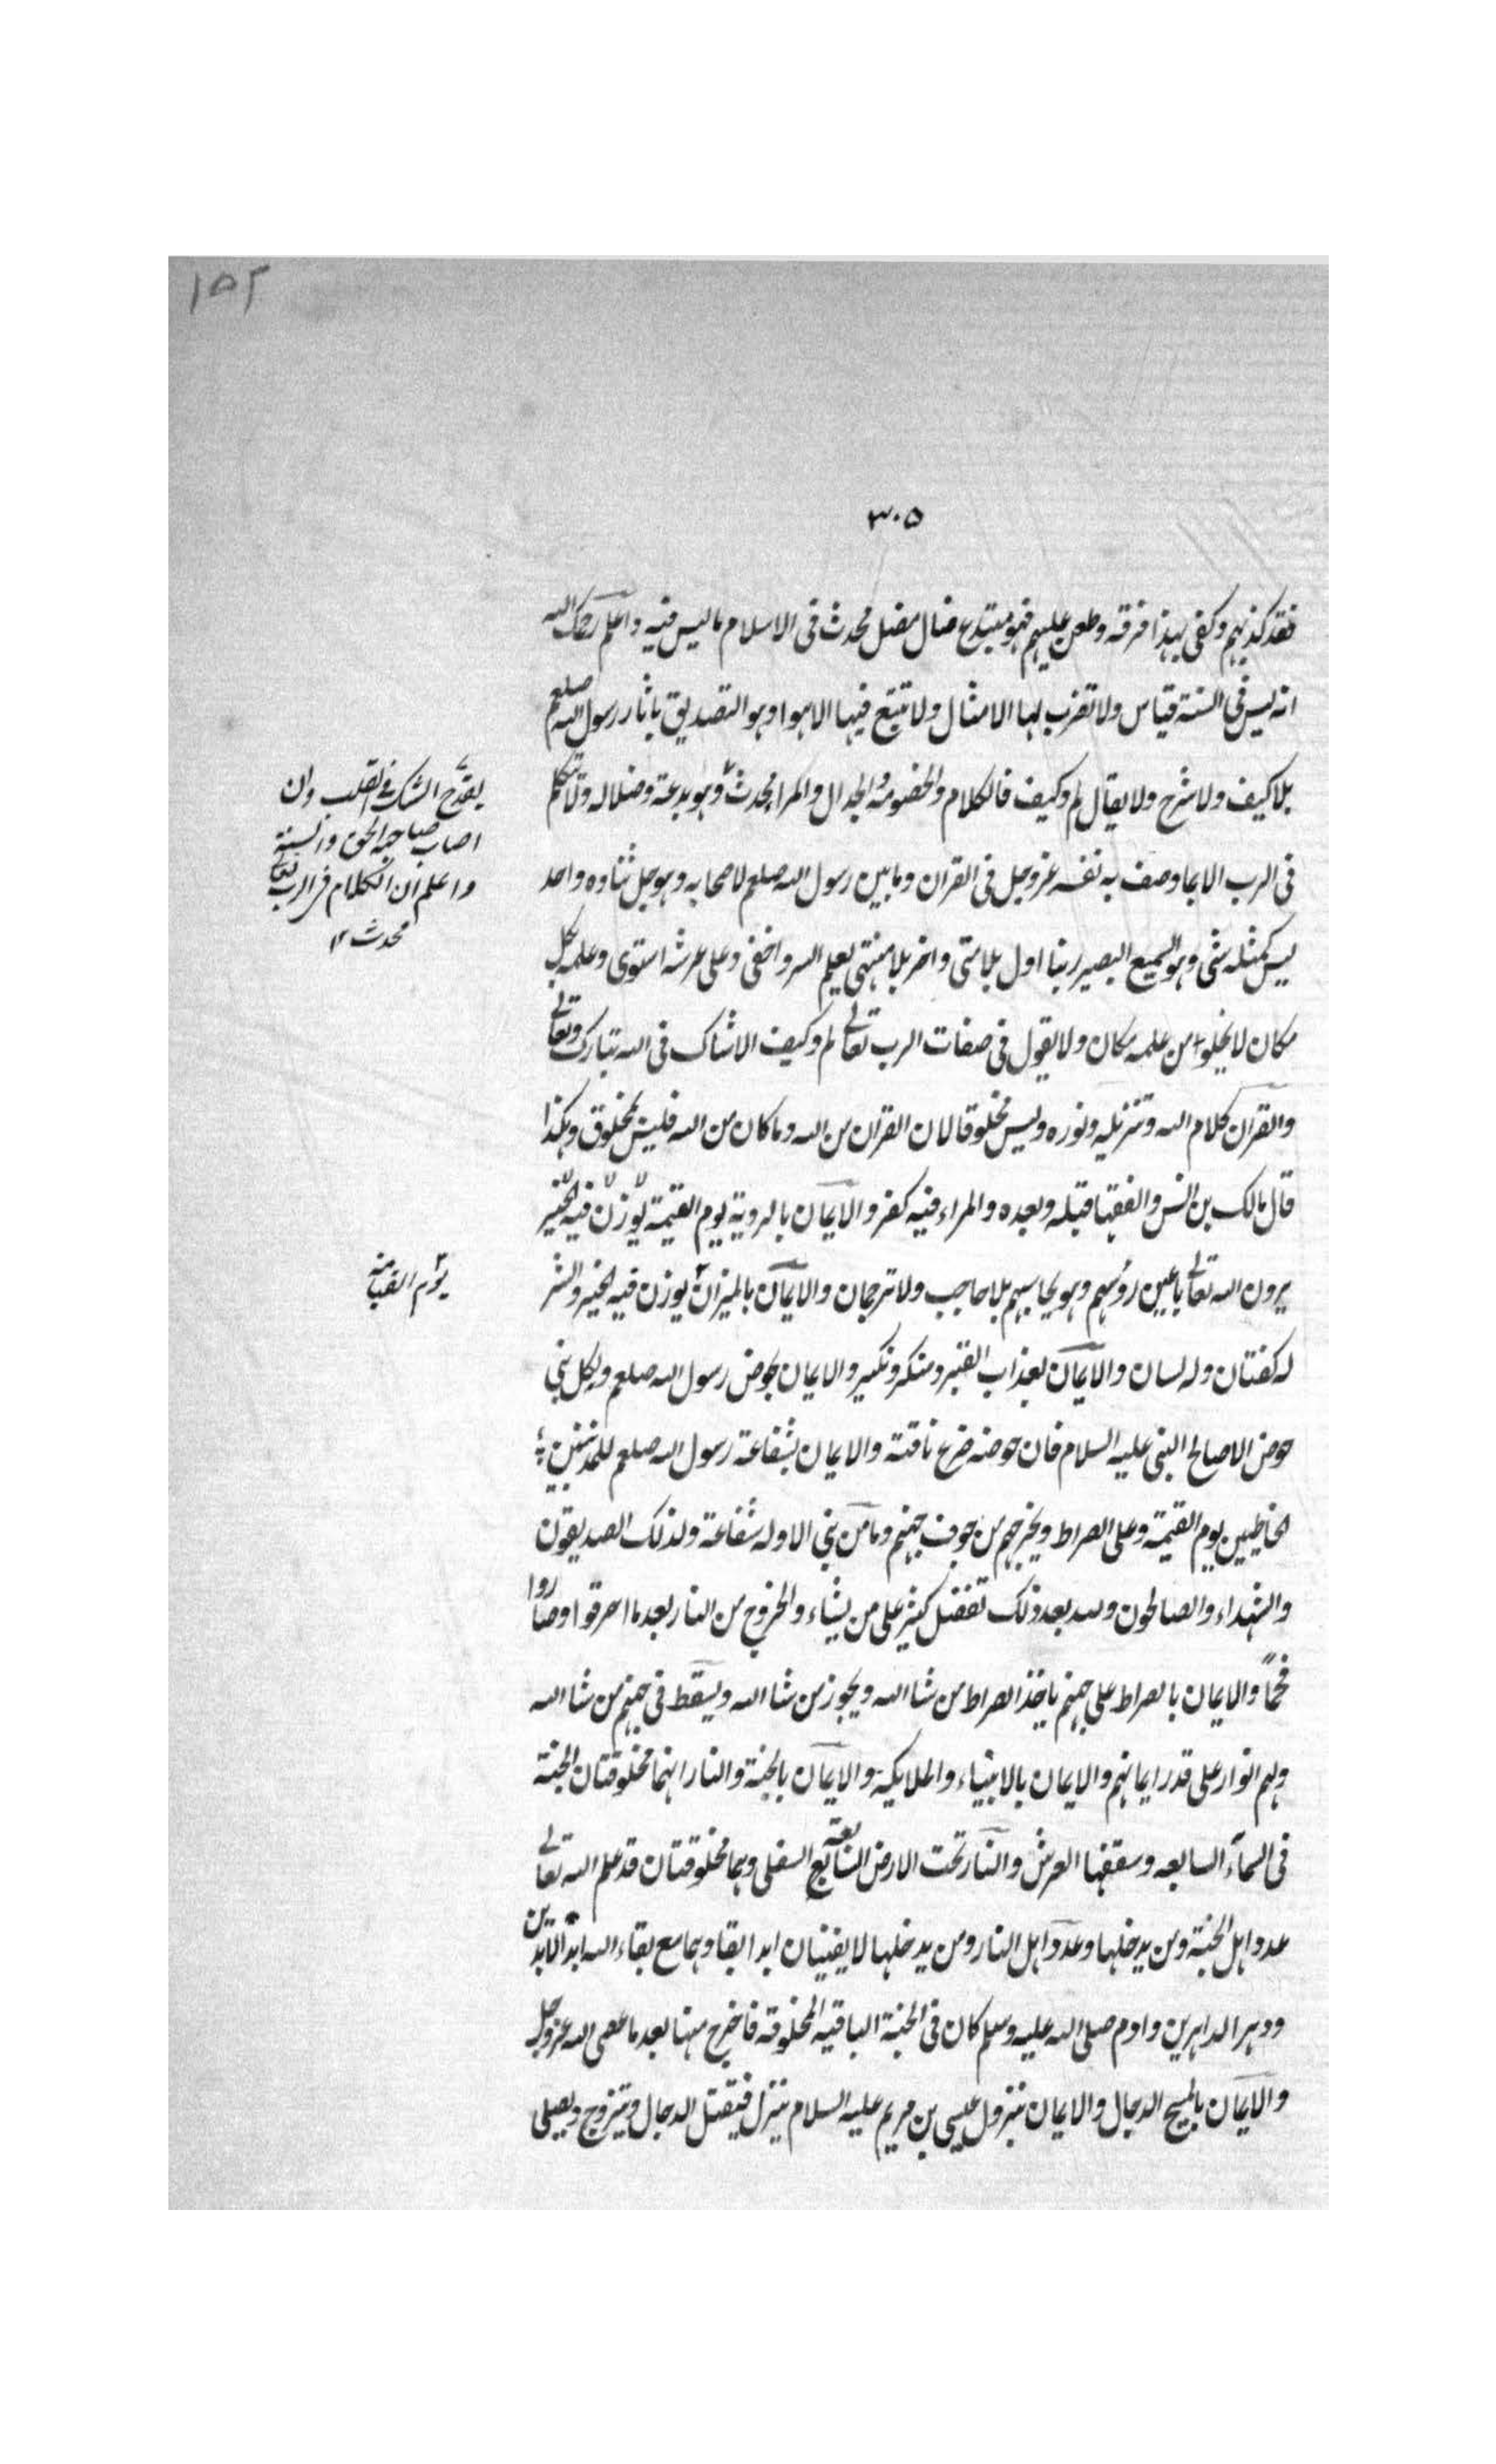 ١٥٢
٣٠٥
فقد كذبهم وكفى بهذا فرقه وطعن عليهم فهو مبتدع ضال مضل محدث فى الاسلام ماليس فيه واعلم رحمك الله
انه ليس فى السنة قياس ولا تضرب لها الامثال ولا تتبع فيها الاهوا وهو التصديق باثار رسول الله صلعم
بلا كيف ولا شرح ولا يقال لم وكيف فالكلام والخصومة والجدال والمراء محدث وهو بدعة وضلاله ولا تتكلم
فى الرب الا بما وصف به نفسه عز وجل فى القران وما بين رسول الله صلعم لاصحابه وهو جل ثناوه واحد
ليس كمثله شى وهو السميع البصير ربنا اول بلا متى واخر بلا منتهى يعلم السر واخفى وعلى عرشه استوى وعلمه بكل
مكان لا يخلوا من علمه مكان ولا يقول فى صفات الرب تعالى لم وكيف الا شاك فى الله تبارك وتعالى
والقرآن كلام الله وتنزيله ونوره وليس مخلوقا لان القران من الله وما كان من الله فليس بمخلوق وهكذا
قال مالك بن انس والفقها قبله وبعده والمراء فيه كفر والايمان بالروية يوم القيمة يوزن فيه الخير
يرون الله تعالى باعين روسهم وهو يحاسبهم بلا حاجب ولا ترجمان والايمان بالميزان يوزن فيه الخير والشر
له كفتان وله لسان والايمان بعذاب القبر ومنكر ونكير والايمان بحوض رسول الله صلعم ولكل نبى
حوض الا صالح النبى عليه السلام فان حوضه ضرع ناقته والايمان بشفاعة رسول الله صلعم للمذنبين
الخاطيين يوم القيمة وعلى الصراط ويخرجهم من جوف جهنم وما من نبى الا وله شفاعة ولذلك الصديقون
والشهداء والصالحون ولله بعد ذلك تفضل كثير على من يشاء والخروج من النار بعد ما احرقوا وصاروا
فحمًا والايمان بالصراط على جهنم ياخذ الصراط من شا الله ويجوز من شا الله ويسقط فى جهنم من شا الله
ولهم انوار على قدر ايمانهم والايمان بالانبياء والملايكة والايمان بالجنة والنار انهما مخلوقتان الجنة
فى السمآء السابعه وسقفها العرش والنار تحت الارض السابعة السفلى وهما مخلوقتان قد علم الله تعالى
عدد اهل الجنة ومن يدخلها وعدد اهل النار ومن يدخلها لا يفنيان ابدا بقا وهما مع بقاء الله ابد الابدين
ودهر الداهرين وادم صلى الله عليه وسلم كان فى الجنة الباقيه المخلوقة فاخرج منها بعد ما عصى الله عز وجل
والايمان بالمسيح الدجال والايمان بنزول عيسى بن مريم عليه السلام ينزل فيقتل الدجال ويتزوج ويصلى
يقدح الشك فى القلب وان
اصاب صاحبه الحق والسنة
واعلم ان الكلام فى الرب تعالى
محدث ١٢
يوم القيامة